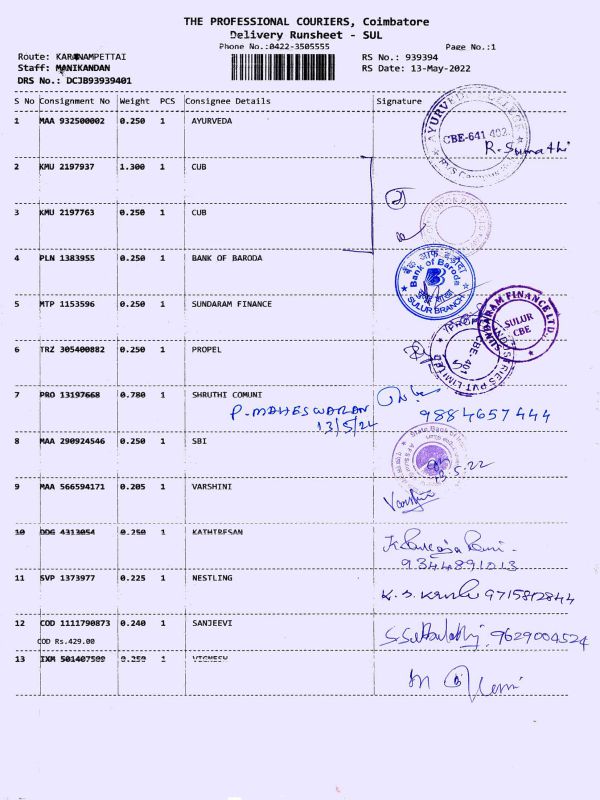 THE PROFESSIONAL COURIERS, Coimbatore
Delivery Runsheet - SUL
Phone No.:0422-3505555
Page No.:1
Route: KARANAMPETTAI
RS No.: 939394
Staff: MANIKANDAN
RS Date: 13-May-2022
DRS No.: DCJB93939401
S No Consignment No Weight PCS Consignee Details Signature
1 MAA 932500002 0.250 1 AYURVEDA
CBE-641 402
R. Sumathi
2 KMU 2197937 1.300 1 CUB
3 KMU 2197763 0.250 1 CUB
4 PLN 1383955 0.250 1 BANK OF BARODA
बैंक ऑफ़ बड़ौदा
Bank of Baroda
SULUR BRANCH
5 MTP 1153596 0.250 1 SUNDARAM FINANCE
SUNDARAM FINANCE LTD.
SULUR
CBE
6 TRZ 305400882 0.250 1 PROPEL
7 PRO 13197668 0.780 1 SHRUTHI COMUNI
P. MAHESWARAN
13/5/24
9884657444
8 MAA 290924546 0.250 1 SBI
State Bank of
13.5.22
9 MAA 566594171 0.205 1 VARSHINI
Varshini
10 DDG 4313054 0.250 1 KATHIRESAN
9344891013
11 SVP 1373977 0.225 1 NESTLING
9715812844
12 COD 1111790873 0.240 1 SANJEEVI
COD Rs.429.00
9629004524
13 IXM 501407509 0.250 1 VIGNESH